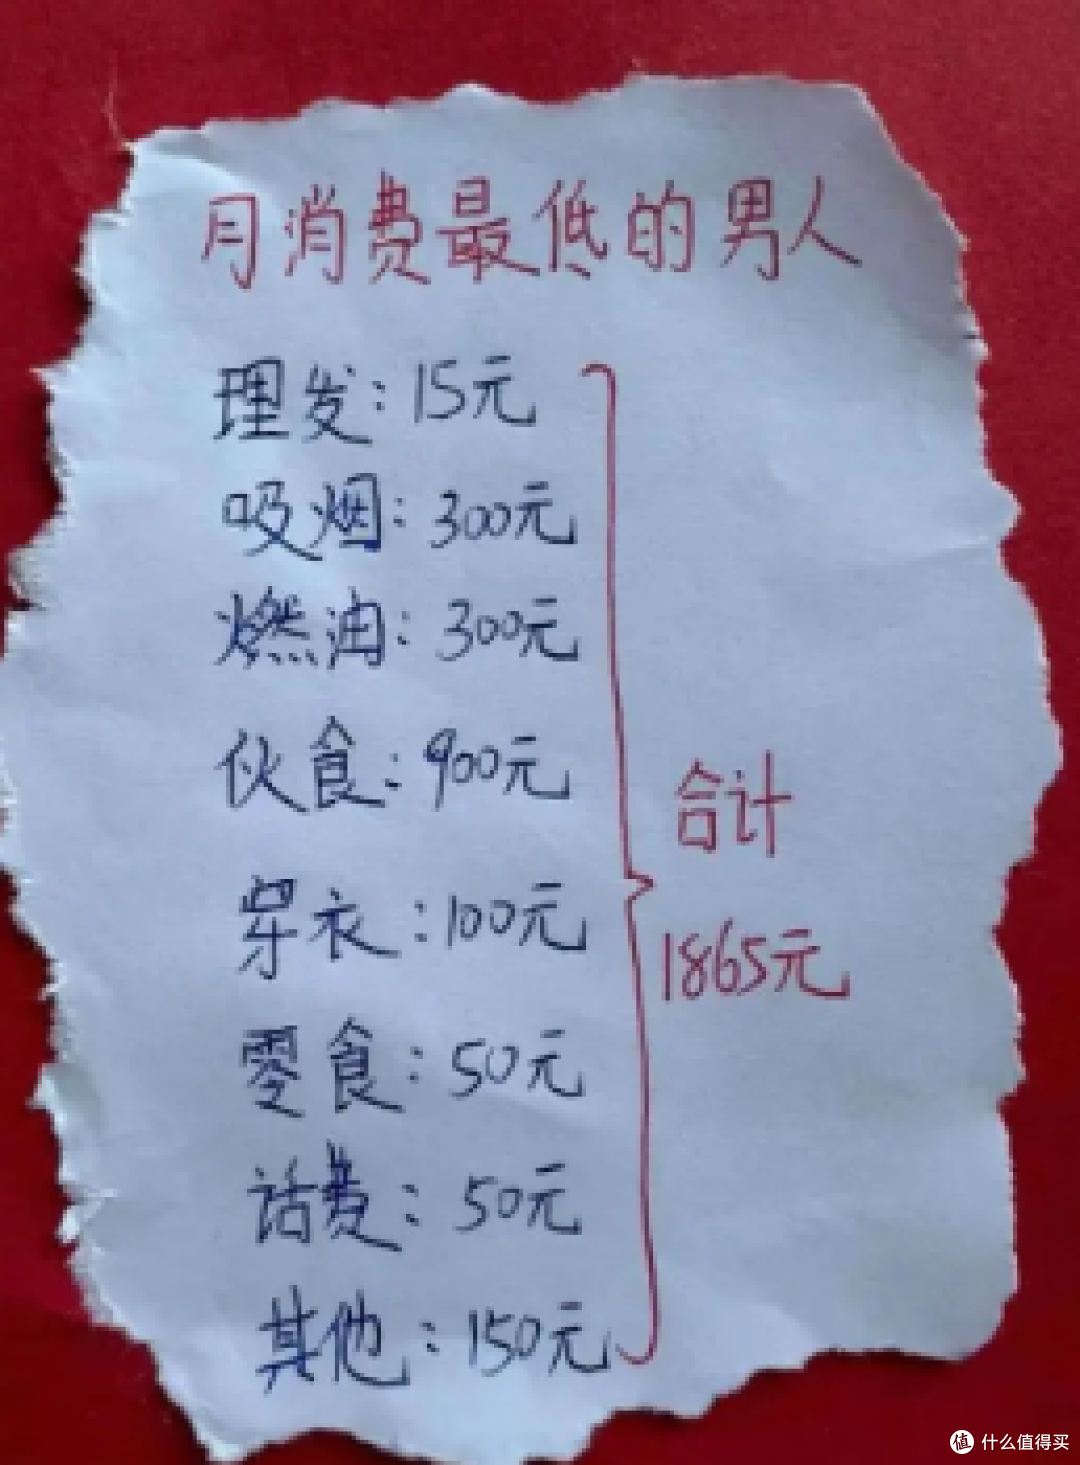 月消费最低的男人
理发：15元
吸烟：300元
燃油：300元
伙食：900元
穿衣：100元
零食：50元
话费：50元
其他：150元
合计
1865元
值 什么值得买